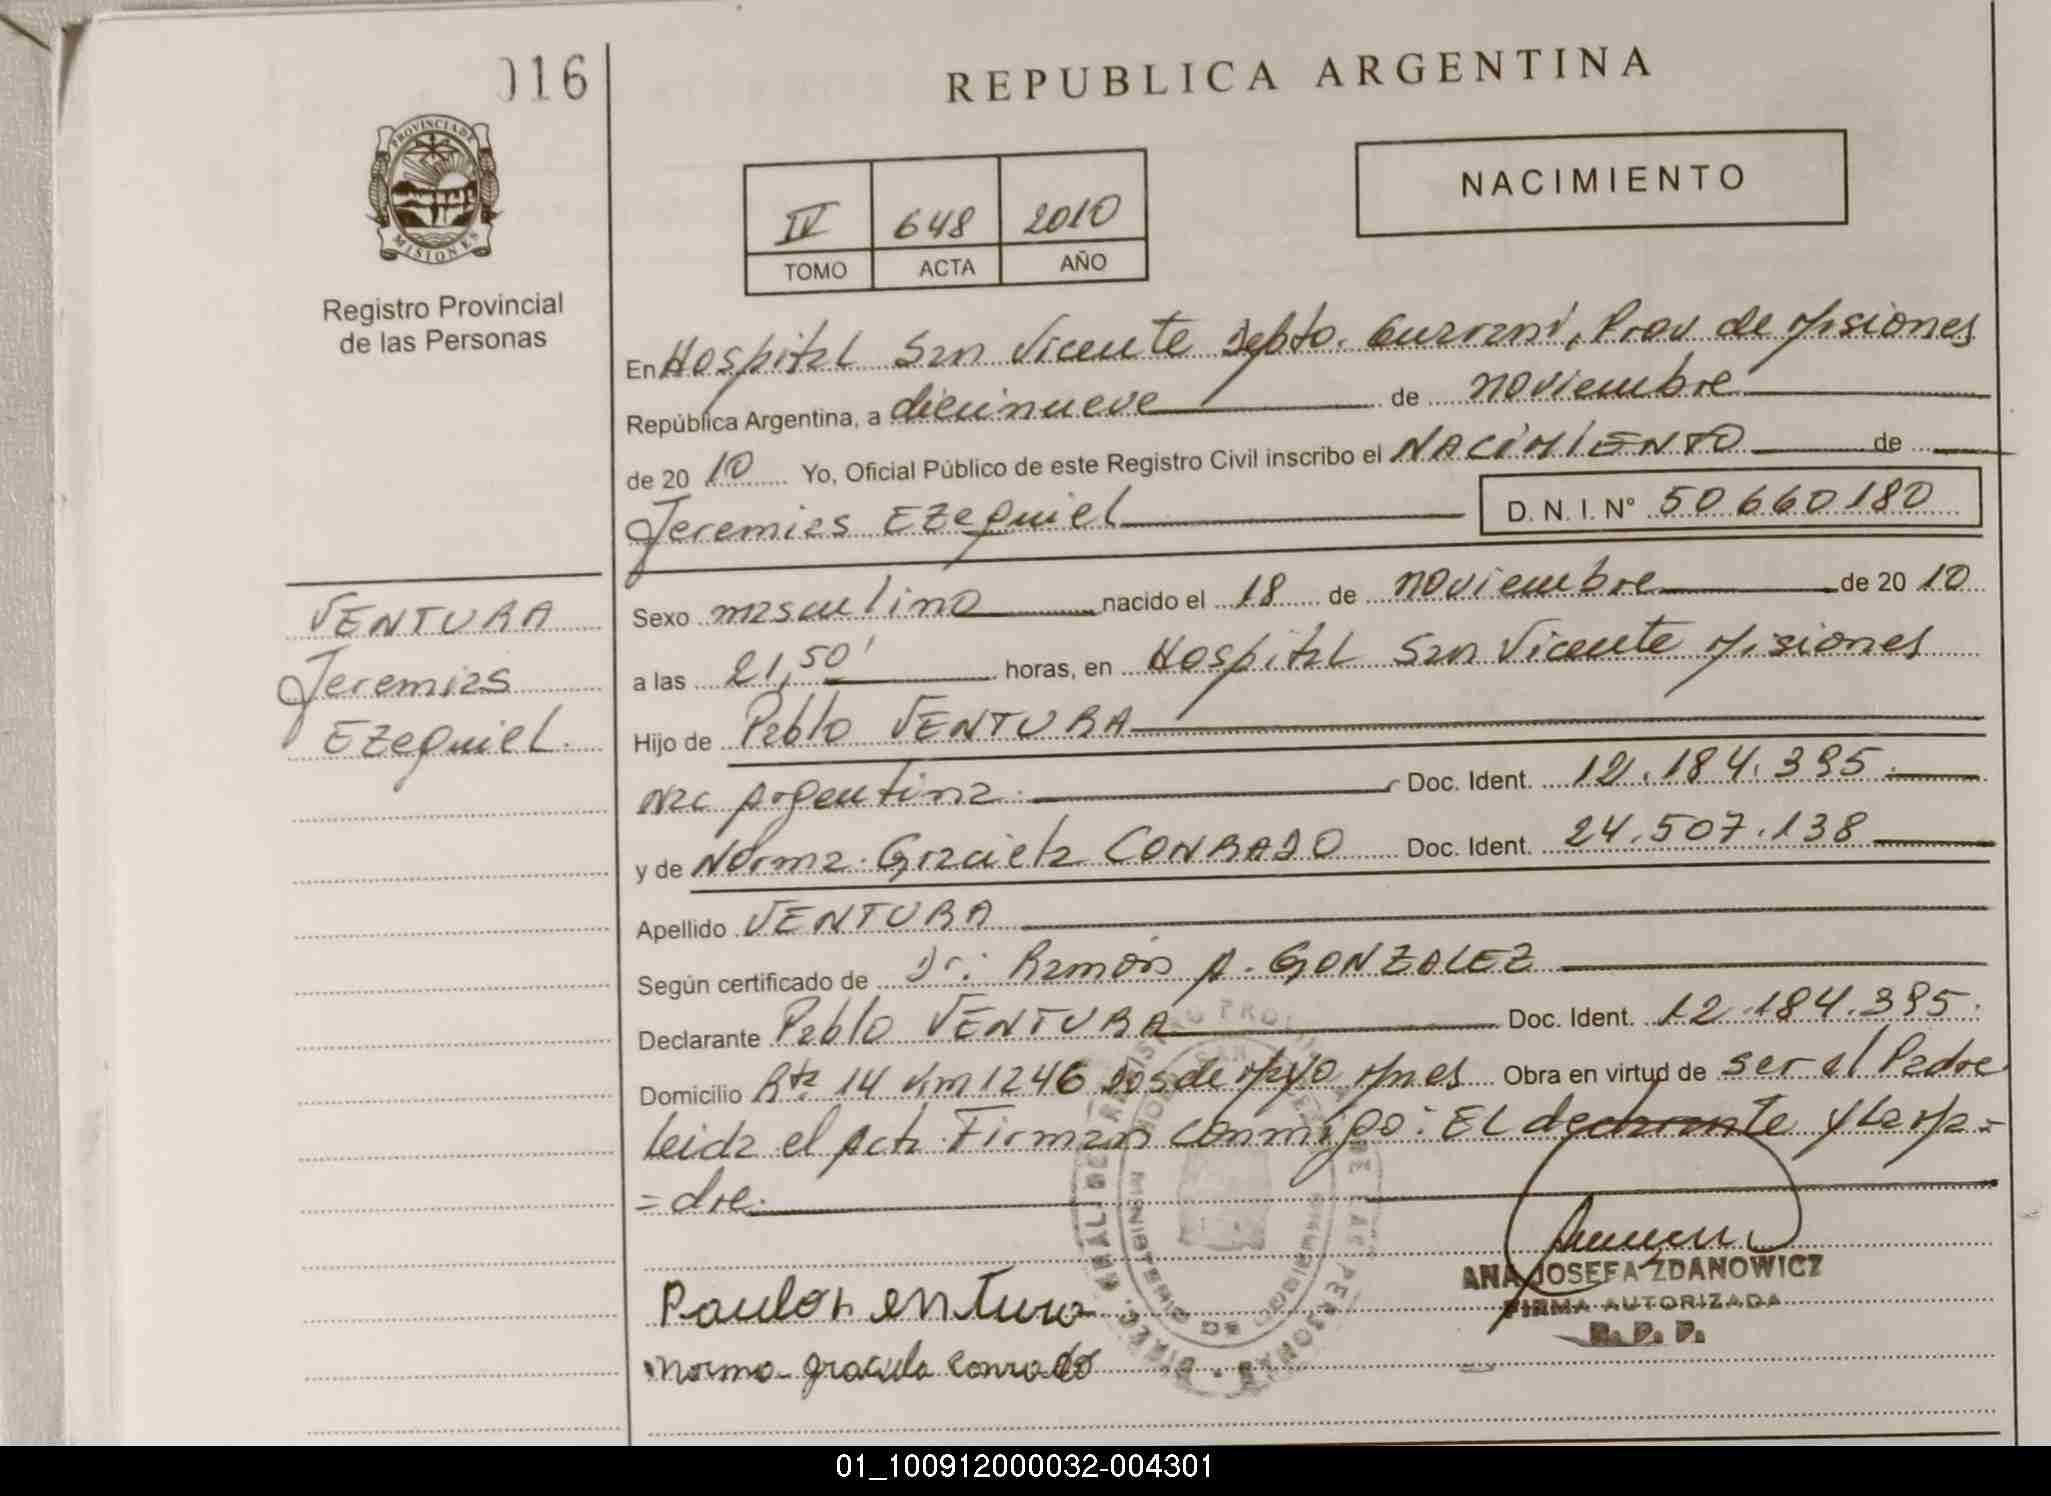 016
REPUBLICA ARGENTINA
PROVINCIA DE
MISIONES
Registro Provincial
de las Personas
IV 648 2010
TOMO ACTA AÑO
NACIMIENTO
En Hospital San Vicente Depto. Guarani, Prov. de Misiones
República Argentina, a diecinueve de noviembre
de 20 10 Yo, Oficial Público de este Registro Civil inscribo el NACIMIENTO de
Jeremias EZequiel D.N.I. N° 50660180
VENTURA
Jeremias
EZequiel.
Sexo masculino nacido el 18 de noviembre de 20 10
a las 21,50' horas, en Hospital San Vicente Misiones
Hijo de Pablo VENTURA
Nac Argentina. Doc. Ident. 12.184.395.
y de Norma Graciela CONRADO Doc. Ident. 24.507.138
Apellido VENTURA
Según certificado de Dr: Ramón A. GONZALEZ
Declarante Pablo VENTURA Doc. Ident. 12.184.395.
Domicilio Rta 14 Km 1246 Dos de Mayo Mnes Obra en virtud de ser el Padre
Leida el Acta Firman conmigo: EL declarante y La Ma=
=dre.
ANA JOSEFA ZDANOWICZ
FIRMA AUTORIZADA
R. P. P.
norma graciela conrado
01_100912000032-004301